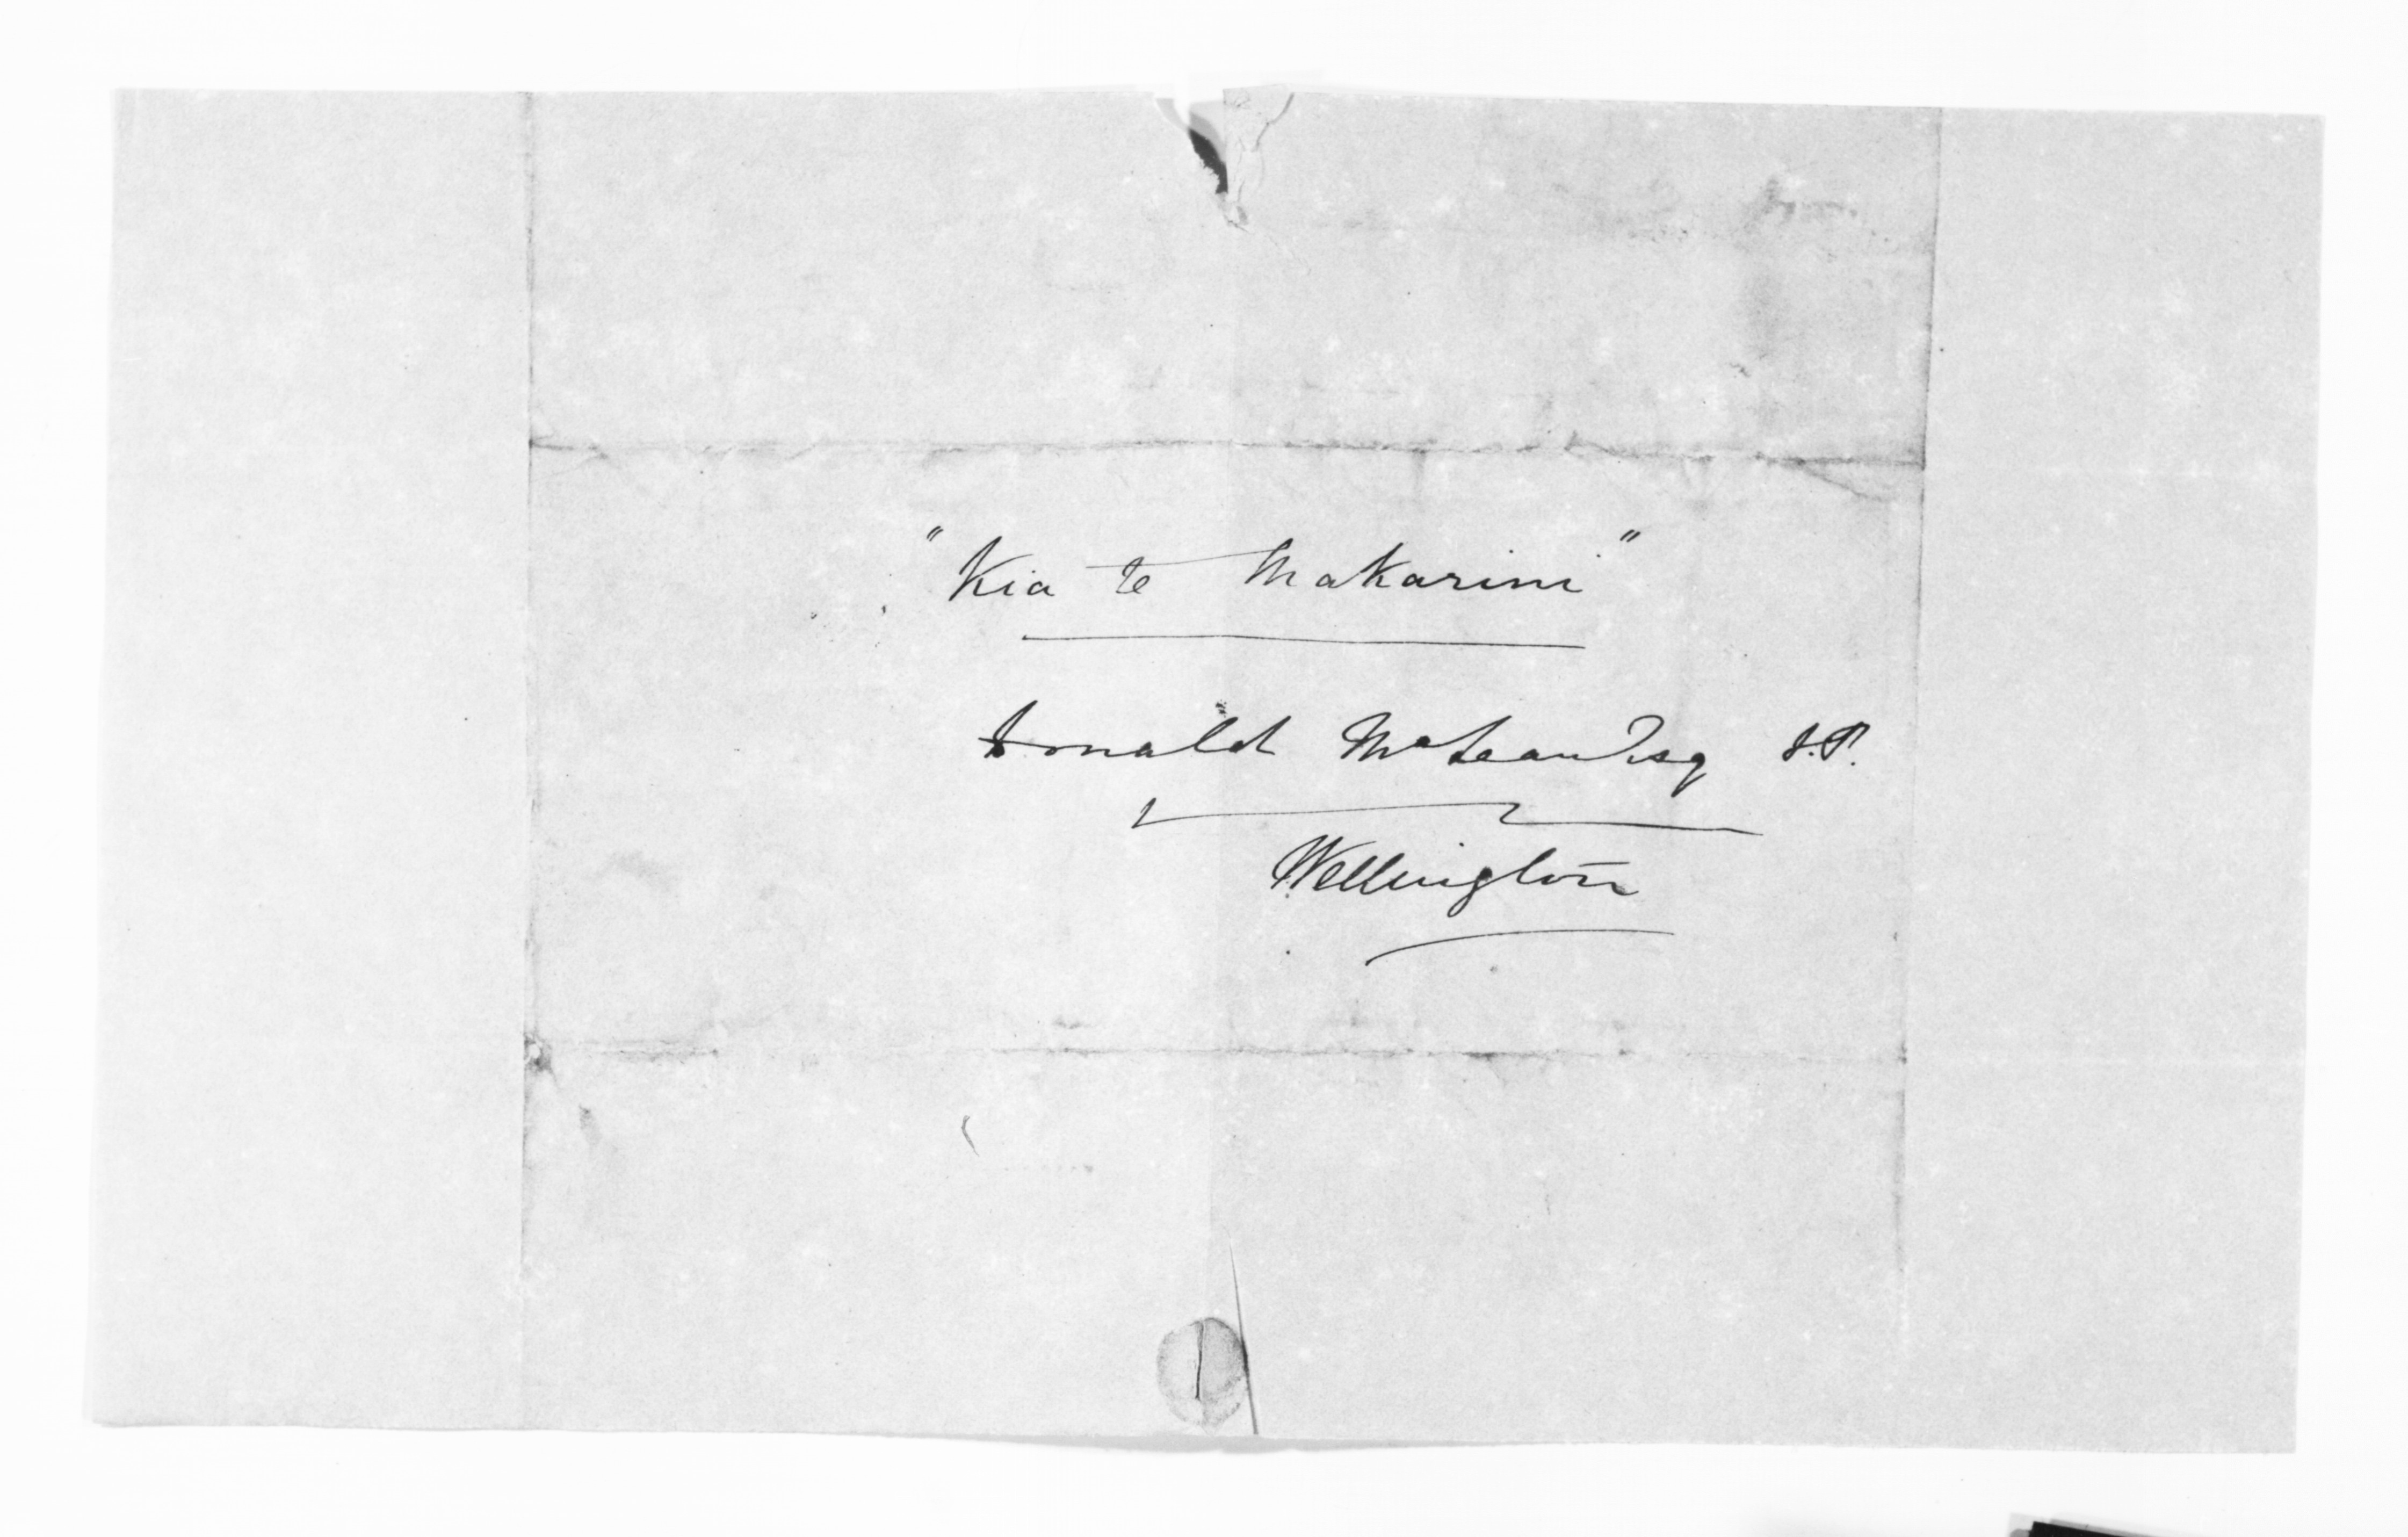 "Kia te Makarini"
Donald McLean Esq J.P.
Wellington